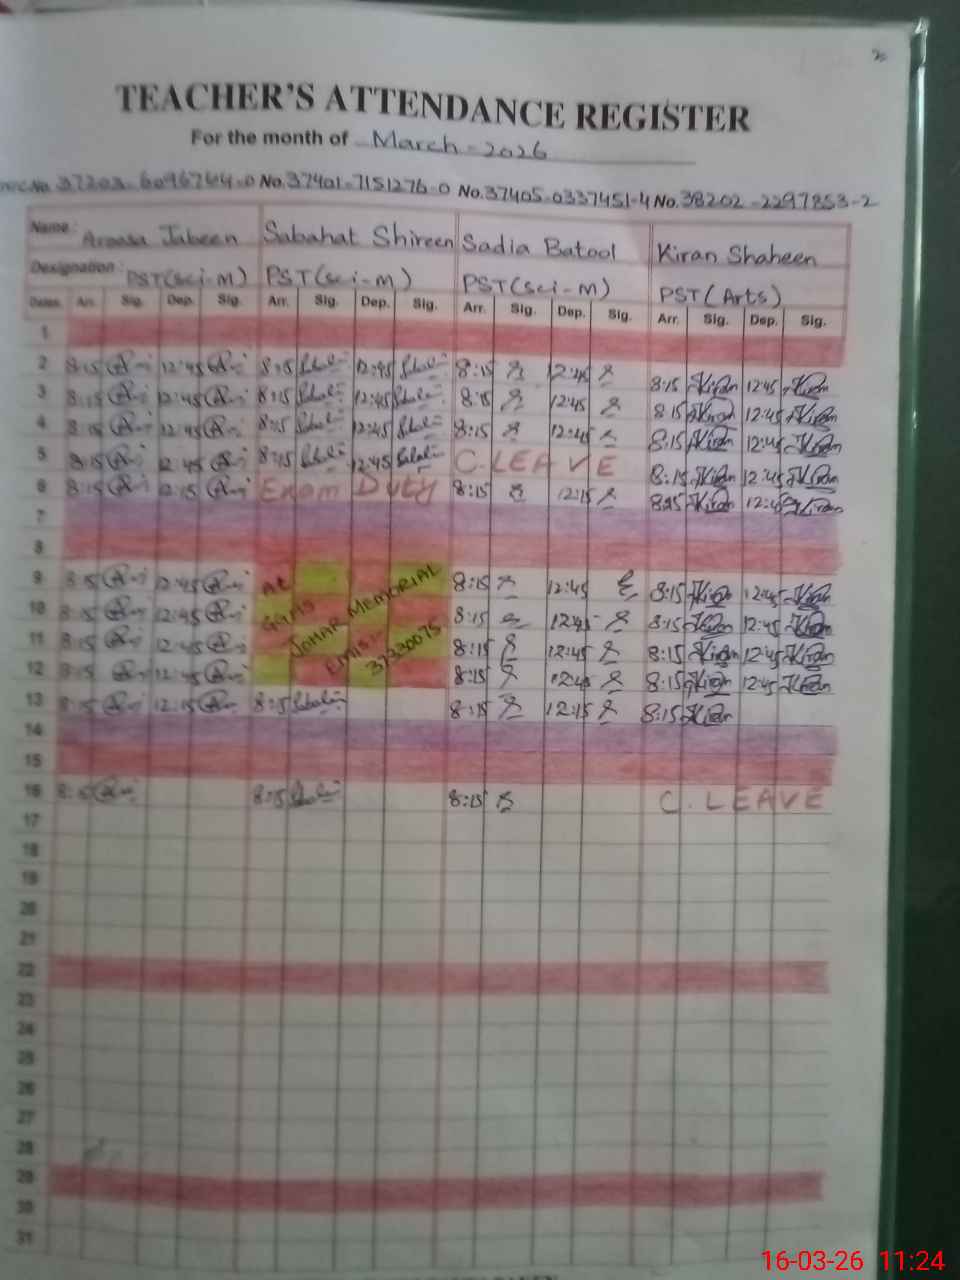 TEACHER'S ATTENDANCE REGISTER
For the month of March-2026
No.37401-7151276-0 No.37405-0337451-4 No.38202-2297853-2
Name: Aroosa Jabeen Sabahat Shireen Sadia Batool Kiran Shaheen
Designation: PST(sci-m) PST(sci-m) PST(sci-m) PST(Arts)
Dates Arr. Sig. Dep. Sig. Arr. Sig. Dep. Sig. Arr. Sig. Dep. Sig. Arr. Sig. Dep. Sig.
1
2 8:15 12:45 8:15 12:45 8:15 12:45 8:15 Kiran 12:45 Kiran
3 8:15 12:45 8:15 12:45 8:15 12:45 8:15 Kiran 12:45 Kiran
4 8:15 12:45 8:15 12:45 8:15 12:45 8:15 Kiran 12:45 Kiran
5 8:15 12:45 8:15 12:45 C.LEAVE 8:15 Kiran 12:45 Kiran
6 8:15 12:15 Exam Duty 8:15 12:15 8:15 Kiran 12:45 Kiran
7
8
9 8:15 12:45 At 8:15 12:45 8:15 Kiran 12:45 Kiran
10 8:15 12:45 GGHS JOHAR MEMORIAL 8:15 12:45 8:15 Kiran 12:45 Kiran
11 8:15 12:45 EMIS:- 37330075 8:15 12:45 8:15 Kiran 12:45 Kiran
12 8:15 12:45 8:15 12:45 8:15 Kiran 12:45 Kiran
13 8:15 12:15 8:15 8:15 12:15 8:15 Kiran
14
15
16 8:15 8:15 8:15 C. LEAVE
17
18
19
20
21
22
23
24
25
26
27
28
29
30
31
16-03-26 11:24